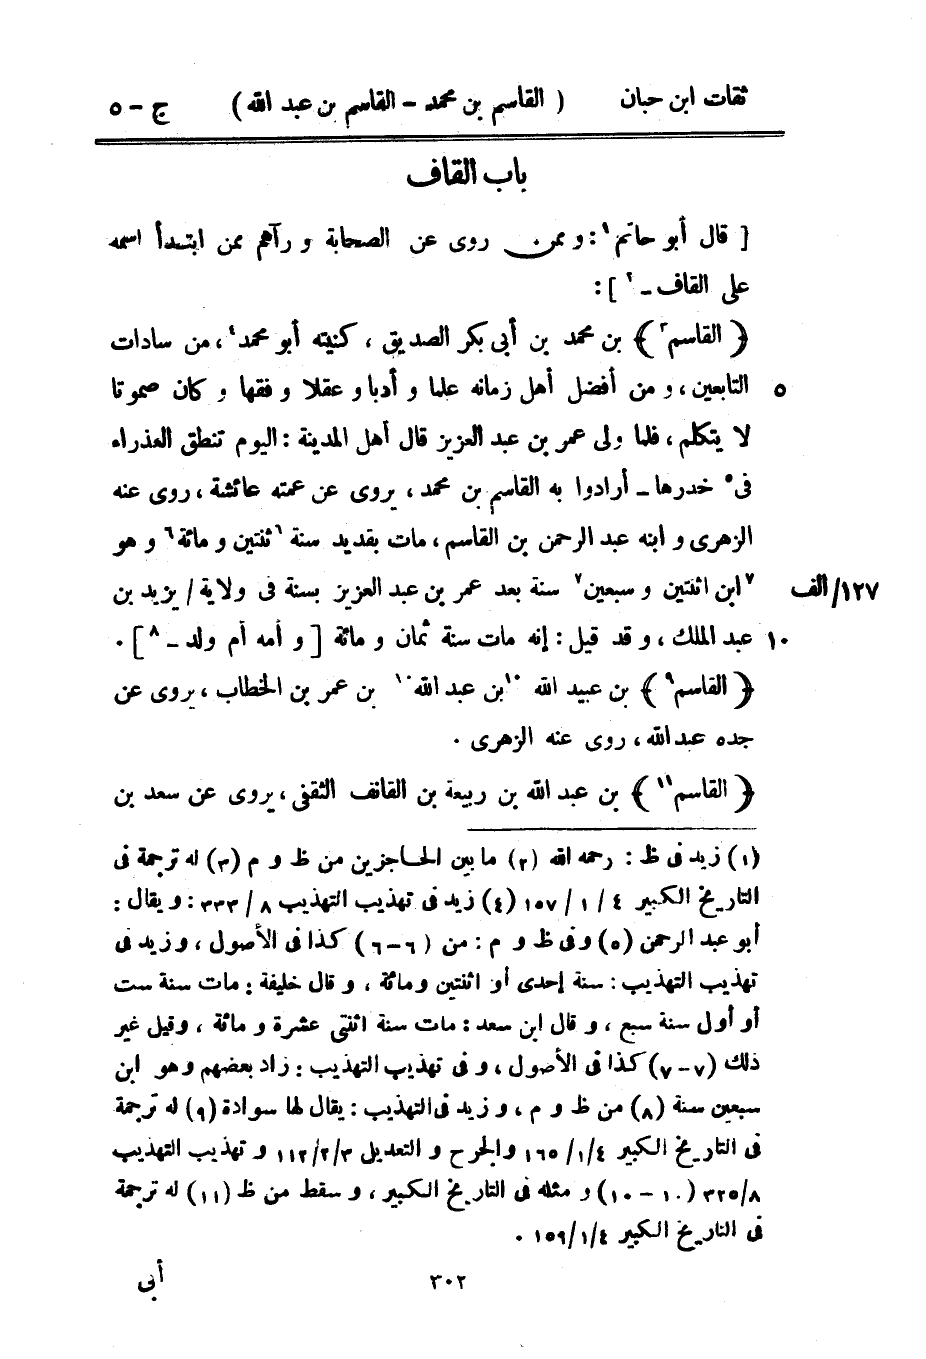 ثقات ابن حبان ( القاسم بن محمد - القاسم بن عبد الله ) ج - ٥
باب القاف
[ قال أبو حاتم ١ : و ممن روى عن الصحابة و رآهم ممن ابتدأ اسمه
على القاف - ٢ ] :
﴿ القاسم ٣ ﴾ بن محمد بن أبي بكر الصديق ، كنيته أبو محمد ٤ ، من سادات
٥ التابعين ، و من أفضل أهل زمانه علما و أدبا و عقلا و فقها و كان صموتا
لا يتكلم ، فلما ولى عمر بن عبد العزيز قال أهل المدينة : اليوم تنطق العذراء
فى ٥ خدرها - أرادوا به القاسم بن محمد ، يروى عن عمته عائشة ، روى عنه
الزهرى و ابنه عبد الرحمن بن القاسم ، مات بقديد سنة ٦ ثنتين و مائة ٦ و هو
١٢٧/ الف ٧ ابن اثنتين و سبعين ٧ سنة بعد عمر بن عبد العزيز بسنة فى ولاية / يزيد بن
١٠ عبد الملك ، و قد قيل : إنه مات سنة ثمان و مائة [ و أمه أم ولد - ٨ ] .
﴿ القاسم ٩ ﴾ بن عبيد الله ١٠ بن عبد الله ١٠ بن عمر بن الخطاب ، يروى عن
جده عبد الله ، روى عنه الزهرى .
﴿ القاسم ١١ ﴾ بن عبد الله بن ربيعة بن القانف الثقفى ، يروى عن سعد بن
(١) زيد فى ظ : رحمه الله (٢) ما بين الحاجزين من ظ و م (٣) له ترجمة فى
التاريخ الكبير ٤ / ١ / ١٥٧ (٤) زيد فى تهذيب التهذيب ٨ / ٣٣٣ : و يقال :
أبو عبد الرحمن (٥) وفى ظ و م : من (٦-٦) كذا فى الأصول ، و زيد فى
تهذيب التهذيب : سنة إحدى أو اثنتين ومائة ، و قال خليفة : مات سنة ست
أو أول سنة سبع ، و قال ابن سعد : مات سنة اثنتى عشرة و مائة ، وقيل غير
ذلك (٧-٧) كذا فى الأصول ، و فى تهذيب التهذيب : زاد بعضهم وهو ابن
سبعين سنة (٨) من ظ و م ، و زيد فى التهذيب : يقال لها سوادة (٩) له ترجمة
فى التاريخ الكبير ٤/١/١٦٥ والجرح و التعديل ٣/٢/١١٢ و تهذيب التهذيب
٨/٣٢٥ (١٠-١٠) و مثله فى التاريخ الكبير ، و سقط من ظ (١١) له ترجمة
فى التاريخ الكبير ٤/١/١٥٩ .
٣٠٢ أبى